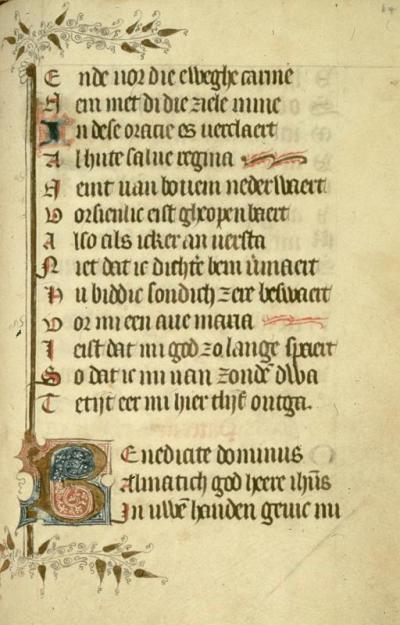 E nde uor die eweghe carine
N em met di die ziele mine
In dese oracie es uerclaert
A l hute salue regina
N eemt uan bouem nederwaert
V orsienlic eist gheopenbaert
A lso als icker an uersta
N iet dat ic dichtre bem vmaert
N u biddic sondich zere beswaert
V or mi een aue maria
I eist dat mi god zo lange spaert
S o dat ic mi uan zonden dwa
T etijt eer mi hier tlijf ontga.
B Enedicite dominus
Almatich god heere ihus
In uwe handen geuic mi